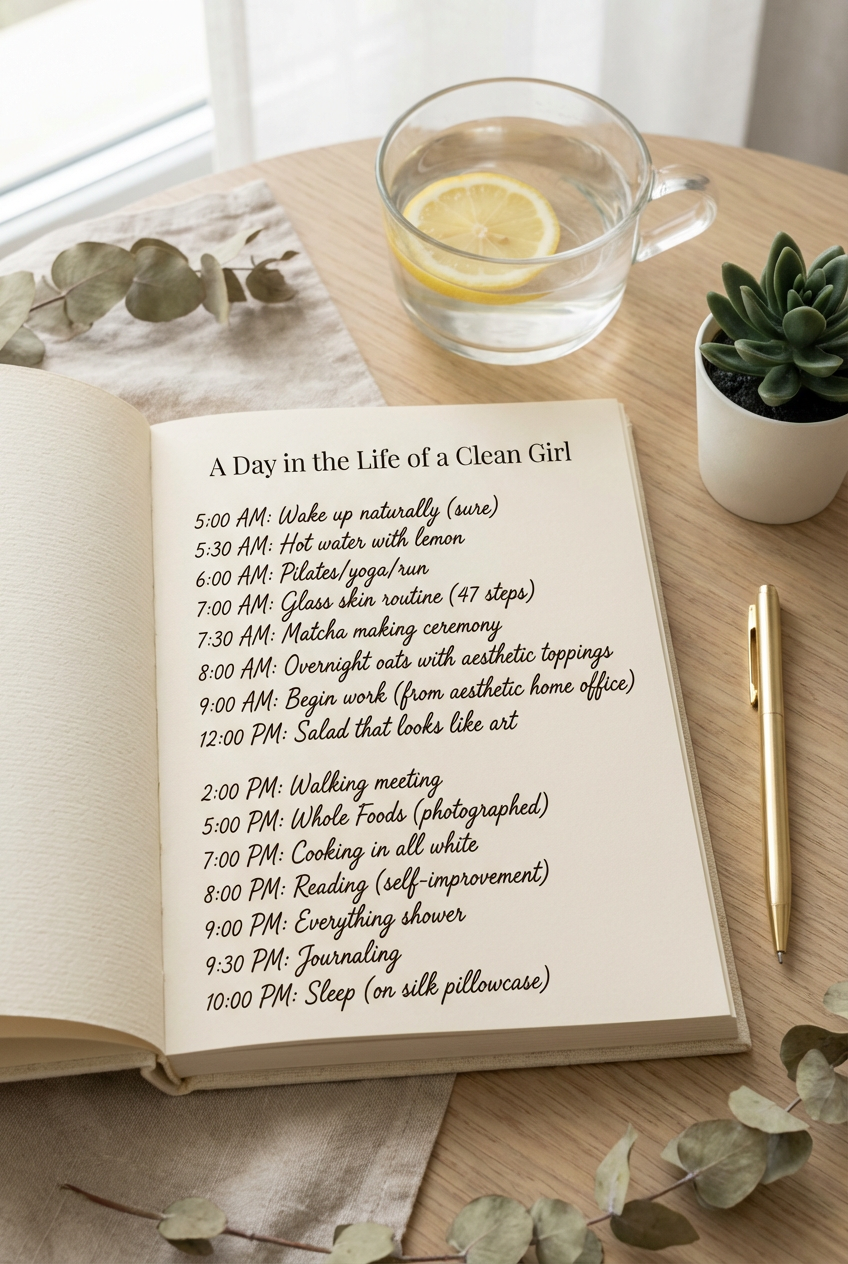 A Day in the Life of a Clean Girl
5:00 AM: Wake up naturally (sure)
5:30 AM: Hot water with lemon
6:00 AM: Pilates/yoga/run
7:00 AM: Glass skin routine (47 steps)
7:30 AM: Matcha making ceremony
8:00 AM: Overnight oats with aesthetic toppings
9:00 AM: Begin work (from aesthetic home office)
12:00 PM: Salad that looks like art
2:00 PM: Walking meeting
5:00 PM: Whole Foods (photographed)
7:00 PM: Cooking in all white
8:00 PM: Reading (self-improvement)
9:00 PM: Everything shower
9:30 PM: Journaling
10:00 PM: Sleep (on silk pillowcase)